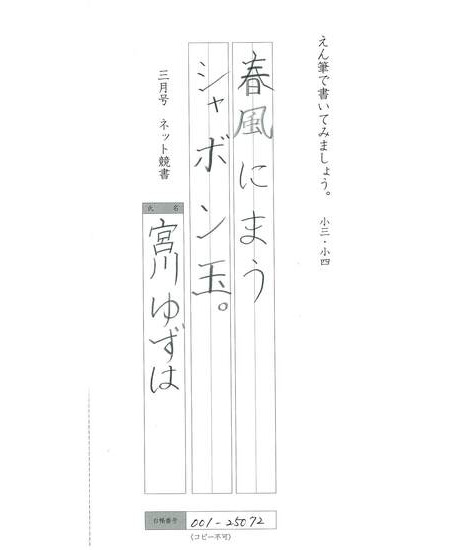 えん筆で書いてみましょう。 小三・小四
春風にまう
シャボン玉。
三月号 ネット競書
氏名
宮川ゆずは
台帳番号 001-25072
(コピー不可)